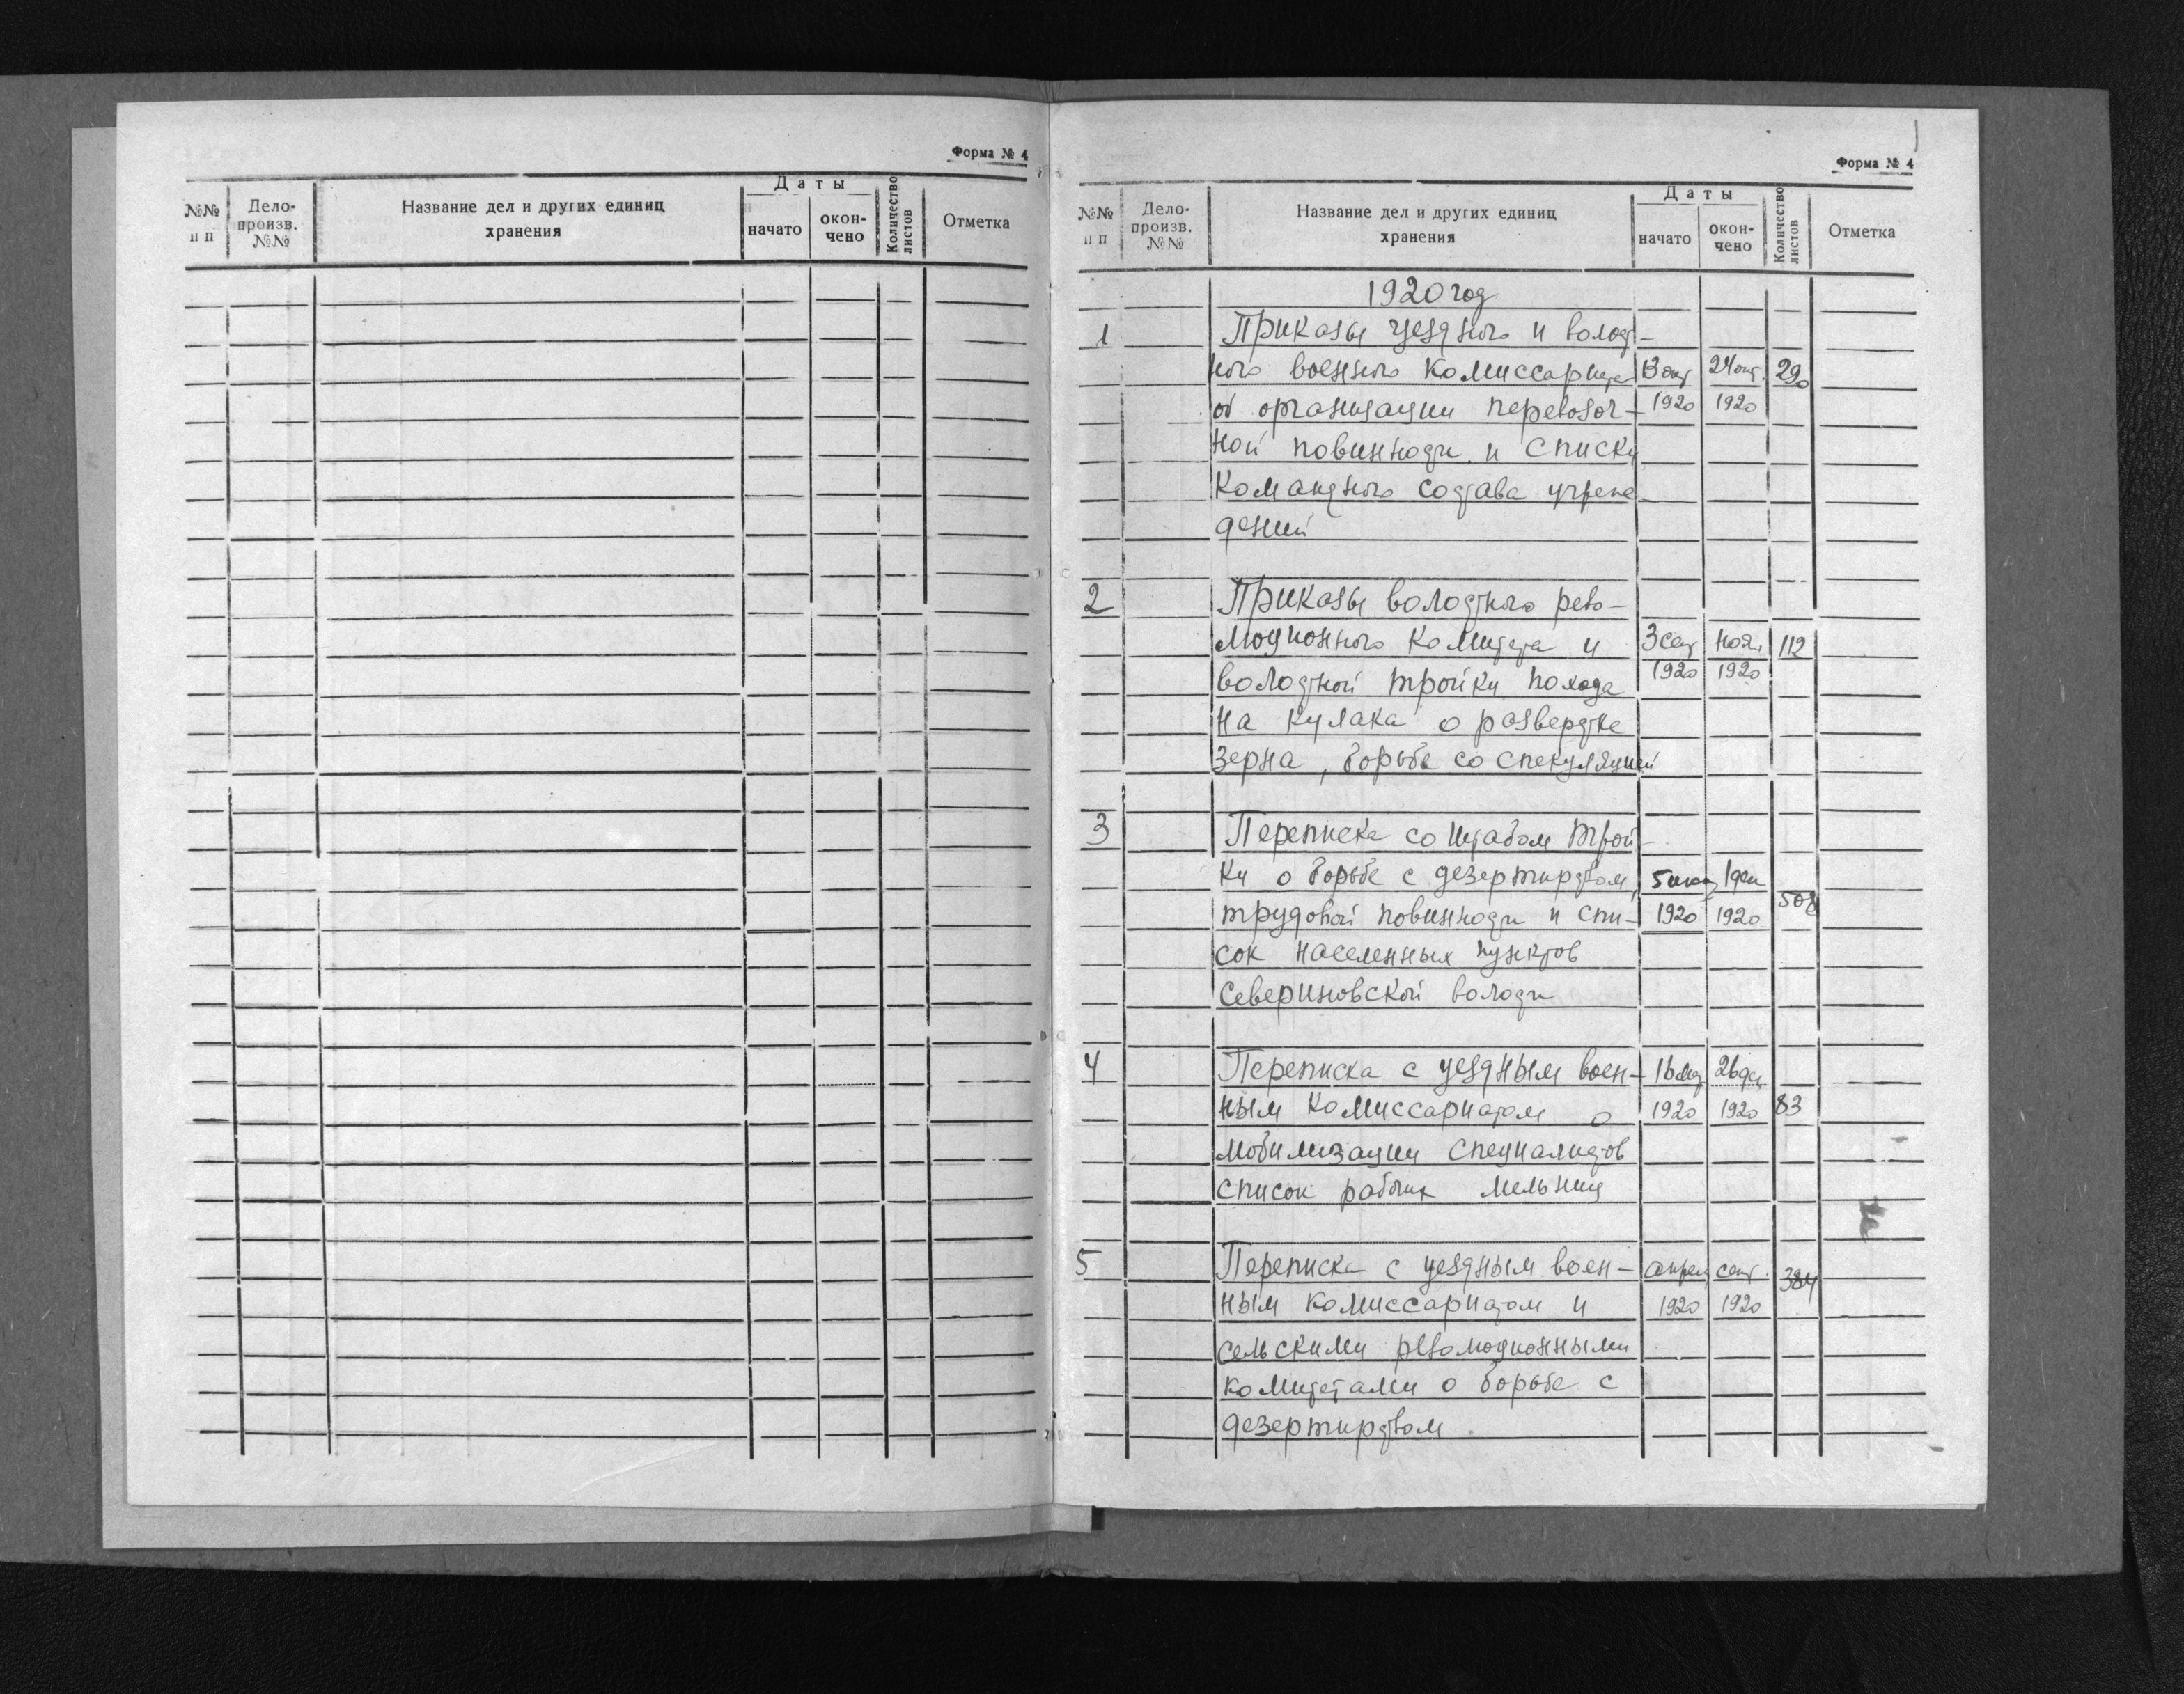 Форма № 4
№№ п п
Дело- произв. №№
Название дел и других единиц хранения
Даты
начато
окон- чено
Количество листов
Отметка
Форма № 4
№№ п п
Дело- произв. №№
Название дел и других единиц хранения
Даты
начато
окон- чено
Количество листов
Отметка
1920 год
1 Приказы уездного и волост-
ного военного комиссариата 13 окт 24 окт. 290
об организации перевозоч- 1920 1920
ной повинности и списки
командного состава учреж
дений
2 Приказы волостного рево-
люционного комитета и 3 сент нояб 112
волостной тройки похода 1920 1920
на кулака о разверстке
зерна, борьбе со спекуляцией
3 Переписка со штабом трой-
ки о борьбе с дезертирством, 5 1 дек
трудовой повинности и спи- 1920 1920 508
сок населенных пунктов
Севериновской волости
4 Переписка с уездным воен- 16 26 дек
ным комиссариатом о 1920 1920 83
мобилизации специалистов
список рабочих мельниц
5 Переписка с уездным воен- апрель сент. 384
ным комиссариатом и 1920 1920
сельскими революционными
комитетами о борьбе с
дезертирством.